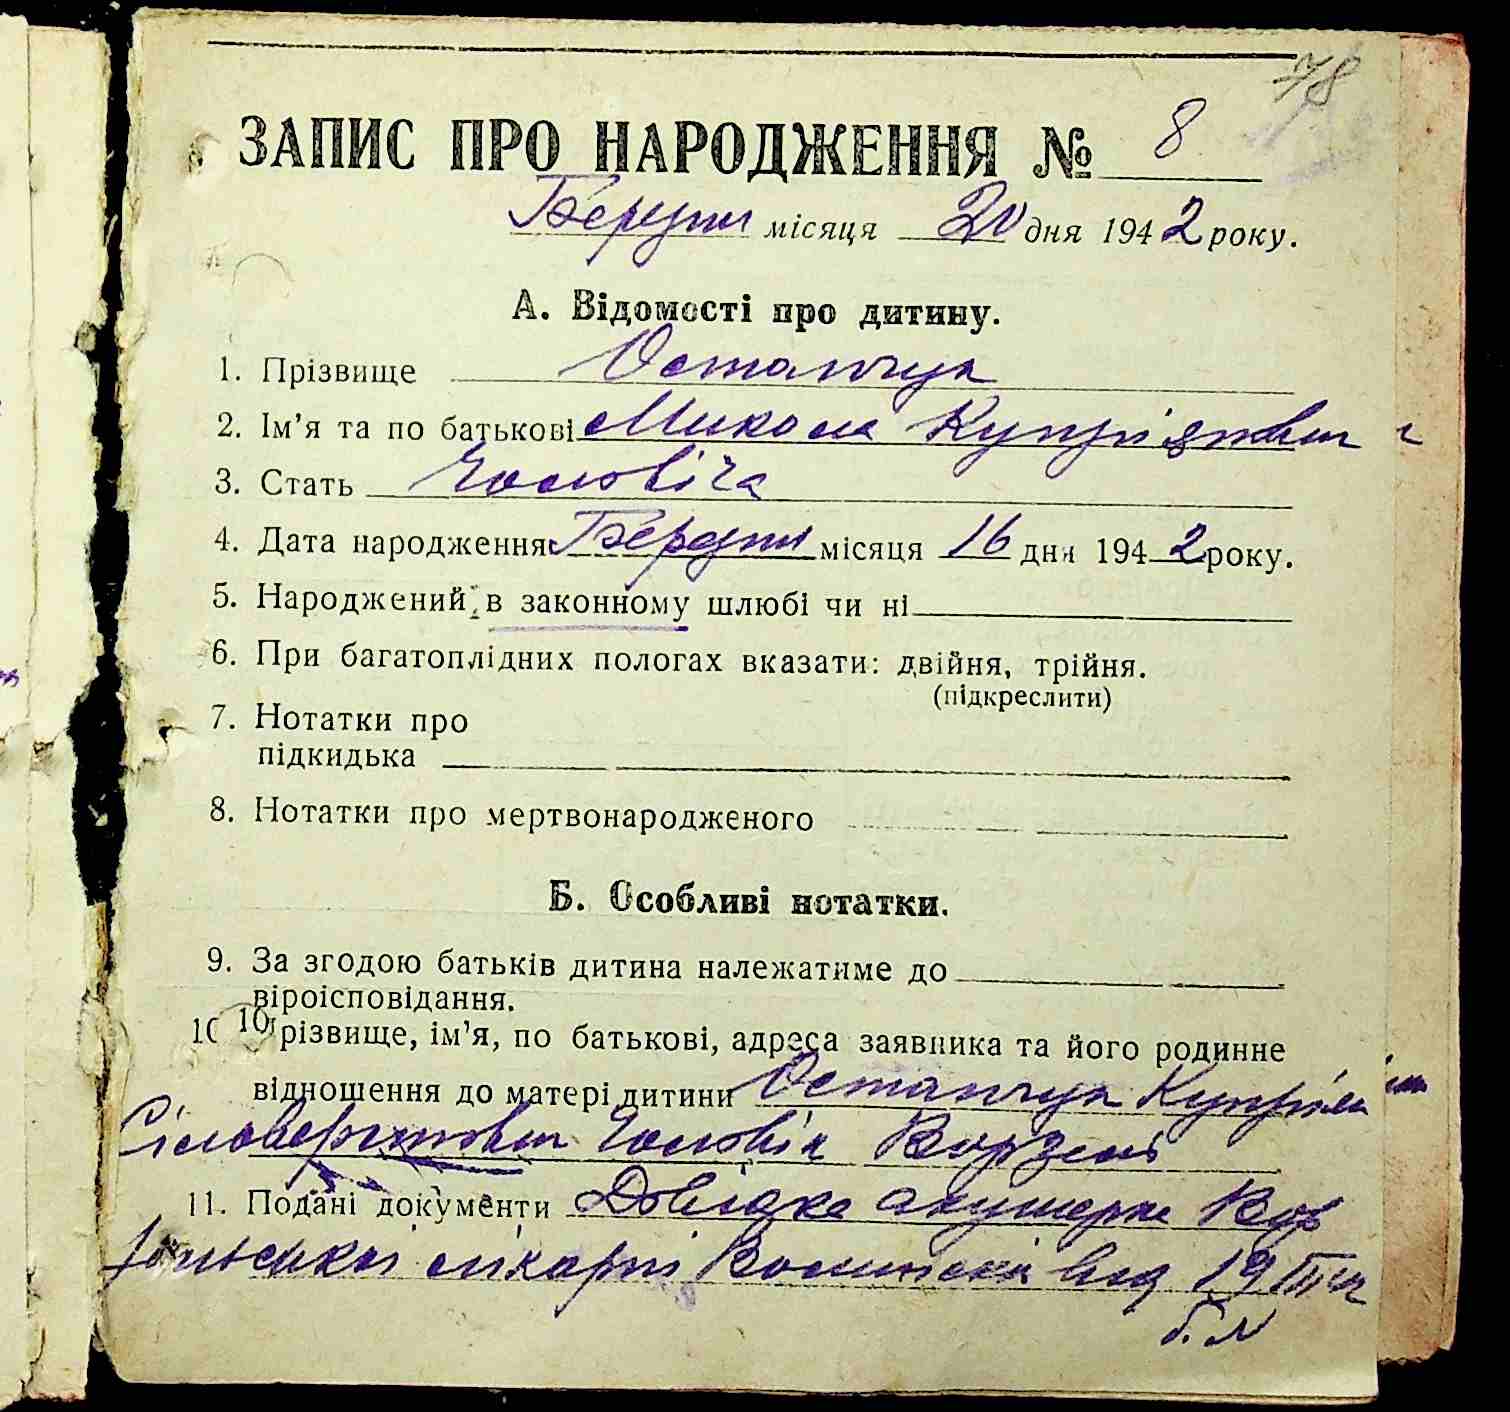 78
ЗАПИС ПРО НАРОДЖЕННЯ № 8
Березня місяця 20 дня 1942 року.
А. Відомості про дитину.
1. Прізвище Остапчук
2. Ім’я та по батькові Микола Купріянович
3. Стать Чоловіча
4. Дата народження Березня місяця 16 дня 1942 року.
5. Народжений в законному шлюбі чи ні
6. При багатоплідних пологах вказати: двійня, трійня.
(підкреслити)
7. Нотатки про
підкидька
8. Нотатки про мертвонародженого
Б. Особливі нотатки.
9. За згодою батьків дитина належатиме до
віроісповідання.
10 10 Прізвище, ім’я, по батькові, адреса заявника та його родинне
відношення до матері дитини Остапчук Купріян
Сіловерстович Чоловік Ворзель
11. Подані документи Довідка акушерки Вор
зельської лікарні від 19
б. №